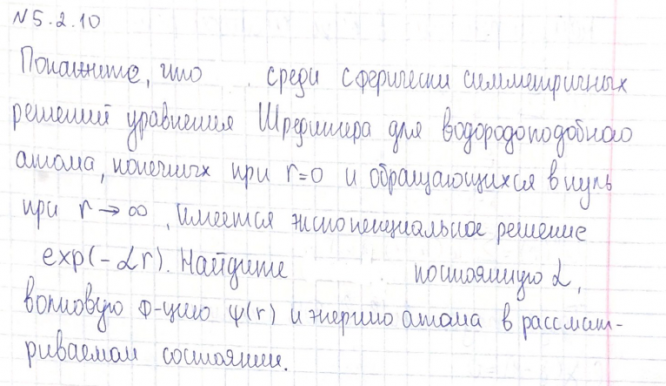 №5.2.10
Покажите, что среди сферически симметричных
решений уравнения Шредингера для водородоподобного
атома, конечных при r=0 и обращающихся в нуль
при r→∞, имеется экспоненциальное решение
exp(-αr). Найдите постоянную α,
волновую ф-цию ψ(r) и энергию атома в рассмат-
риваемом состоянии.